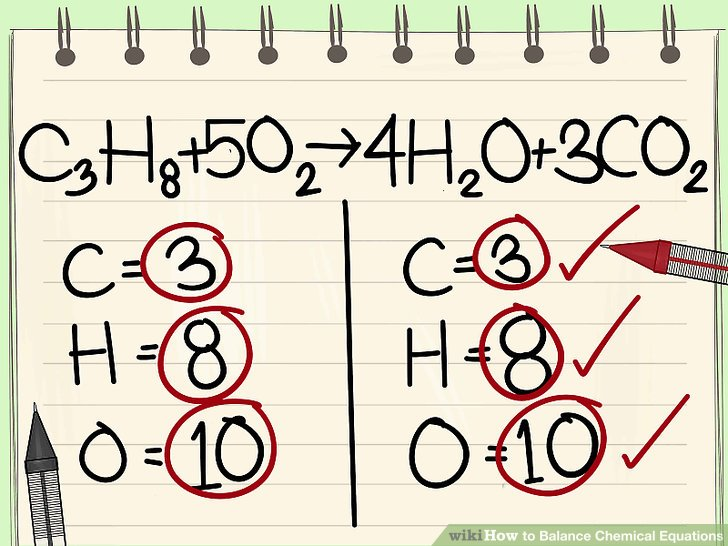 C₃H₈+5O₂→4H₂O+3CO₂
C=3 C=3
H=8 H=8
O=10 O=10
wikiHow to Balance Chemical Equations